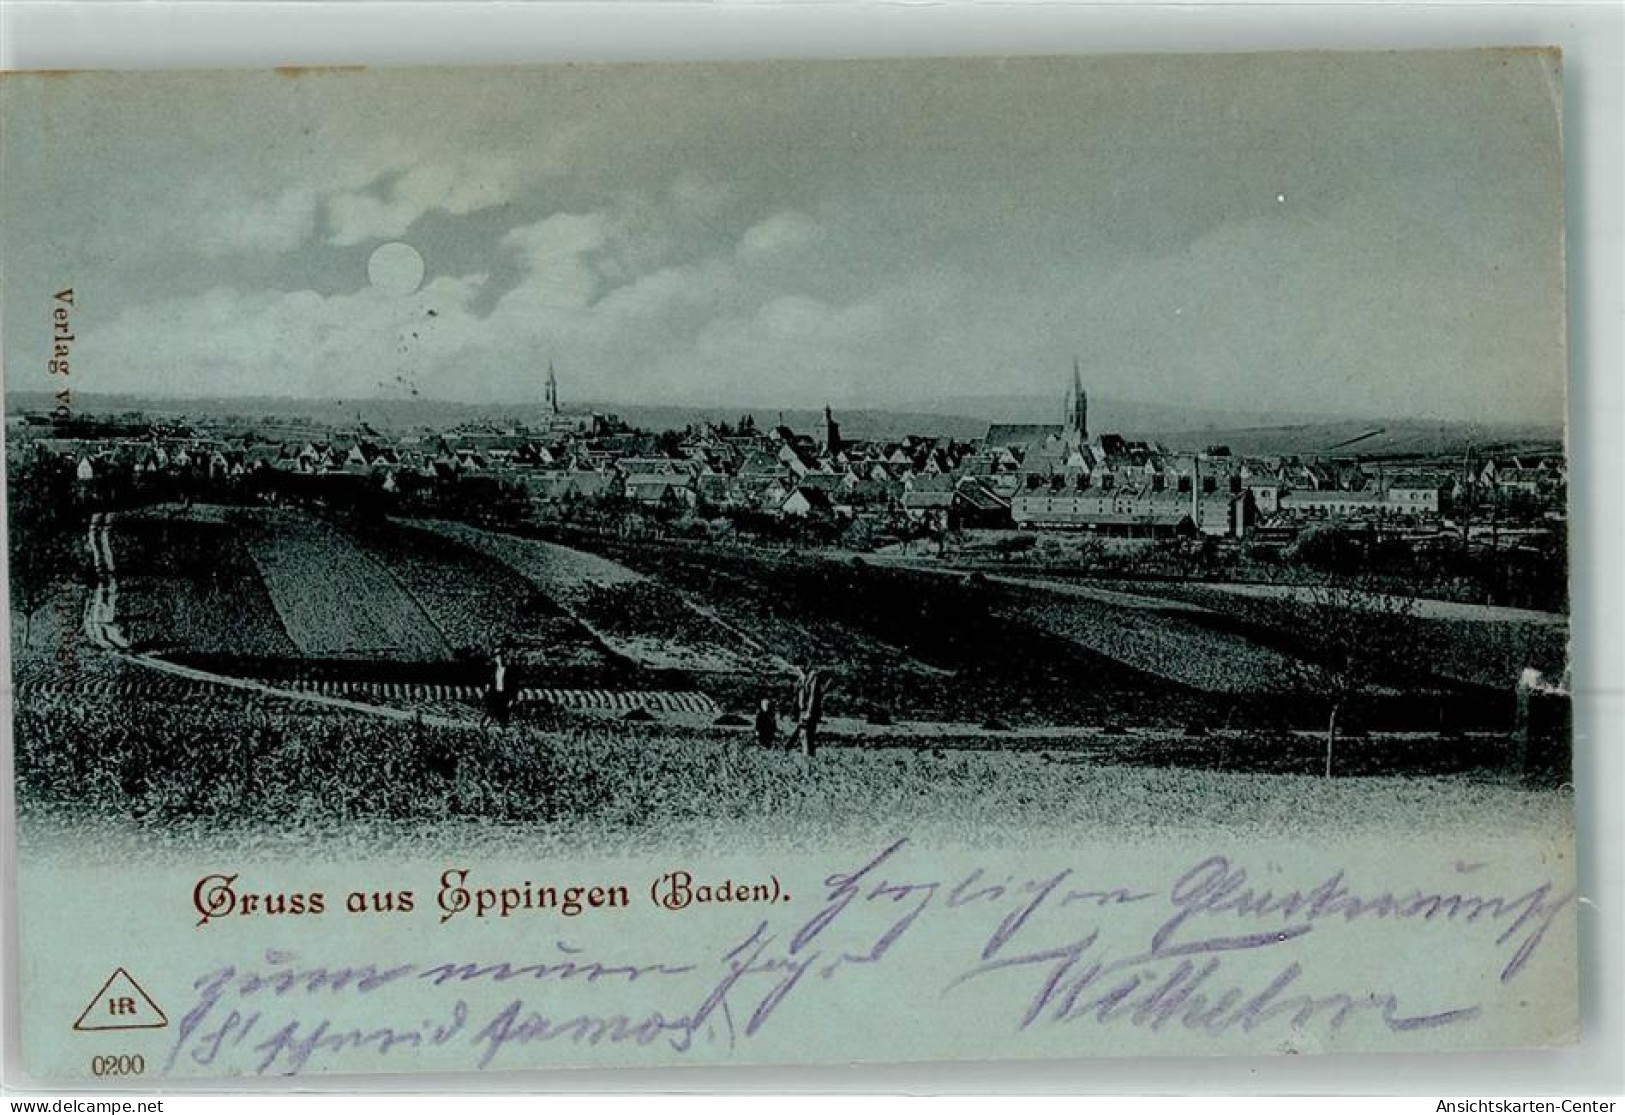 Verlag vo
Gruss aus Eppingen (Baden).
Herzlichen Glückwunsch
zum neuen Jahr
Wilhelm
HR
0200
oldthing.de
Ansichtskarten-Center